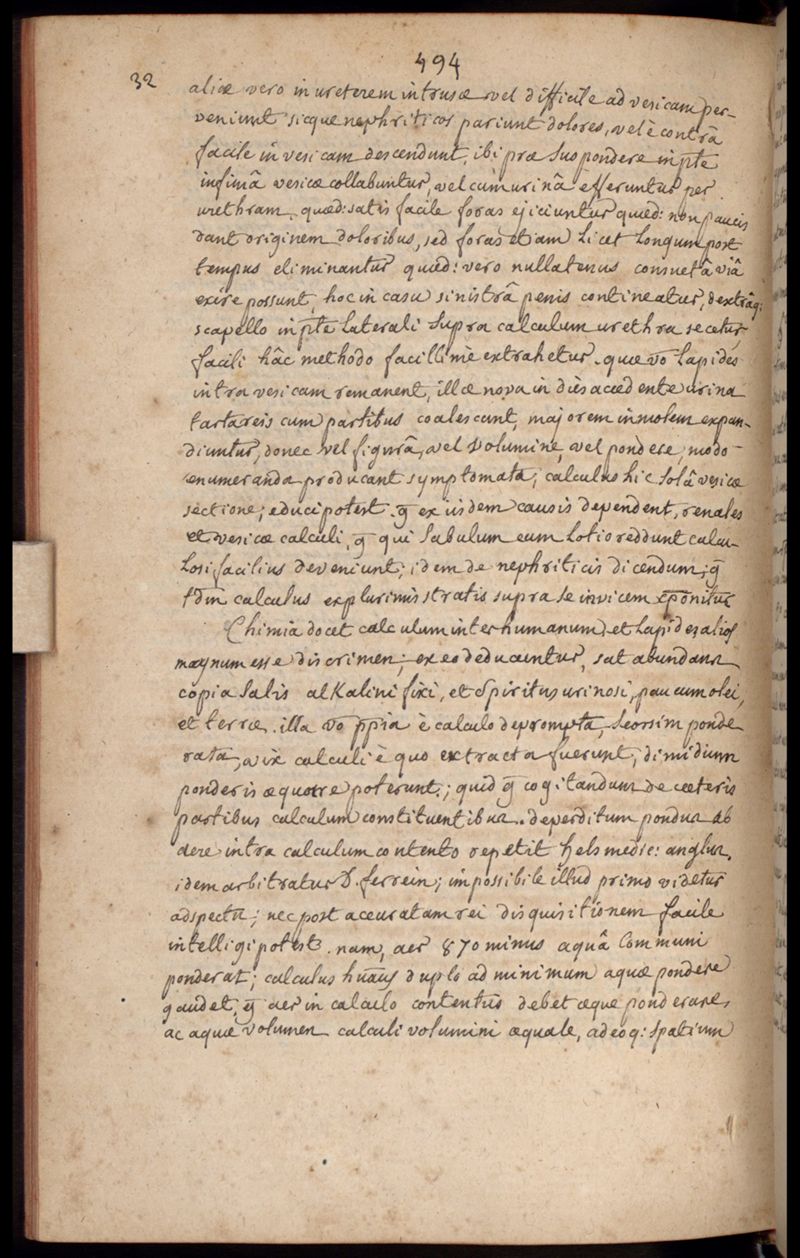 494
32
aliæ vero in ureterem intrusæ vel difficile ad vesicam per-
veniunt sicque nephriticos pariunt dolores, vel è contrâ
facile in vesicam descendunt, ibi præ suo pondere in pte
infimâ vesicæ collabuntur, vel cum urinâ efferuntur per
urethram, quæd: satis facile foras ejiciuntur quæd: non paucis
dant originem doloribus, sed foras etiam licet longum post
tempus eliminantur quæd: vero nullatenus consuetâ viâ
exire possunt, hoc in casu sinistrâ penis contineatur, dextrâq:
scapello in pte laterali supra calculum urethra secetur
facili hâc methodo facillimè extrahetur. quæ vo lapides
intra vesicam remanent, illæ nova in dies accedente urina
tartareis cum partibus coalescunt, majorem in molem expan-
duntur, donec vel figurâ, vel volumine, vel pondere, modo
enumeranda producant symptomata; calculus hic solâ vesicæ
sectione; educi potest. g ex iisdem causis dependent, renales
et vesicæ calculi, g qui sabulum cum lotio reddunt calcu-
losi facilius deveniunt; idem de nephriticis dicendum; g
tdm calculus ex plurimis stratis supra se invicem
Chimia docet calculum inter humanum et lapides alios
magnum esse discrimen; ex eo deducuntur, sat abundans
copia salis alKalini fixi, et spiritus urinosi, paucum olei,
et terræ. illa vo ppia è calculo deprompta, seorsim ponde
rata, vix calculi è quo extracta fuerunt, dimidium
ponderis æquare poterunt; quid g cogitandum de cæteris
partibus calculum constituentibus. deperditum pondus ab
aere intra calculum contento repetit hels medic: anglus,
idem arbitratur D. ferrein; impossibile illud primo videtur
adspectu; nec post accuratam rei disquisitionem facile
intelligi potest. nam, aer 870 minus aquâ communi
ponderat; calculus huaus duplo ad minimum aquæ pondere
gaudet, g aer in calculo contentus debet æque ponderare,
ac aquæ volumen calculi volumini æquale, adeoq: spatium